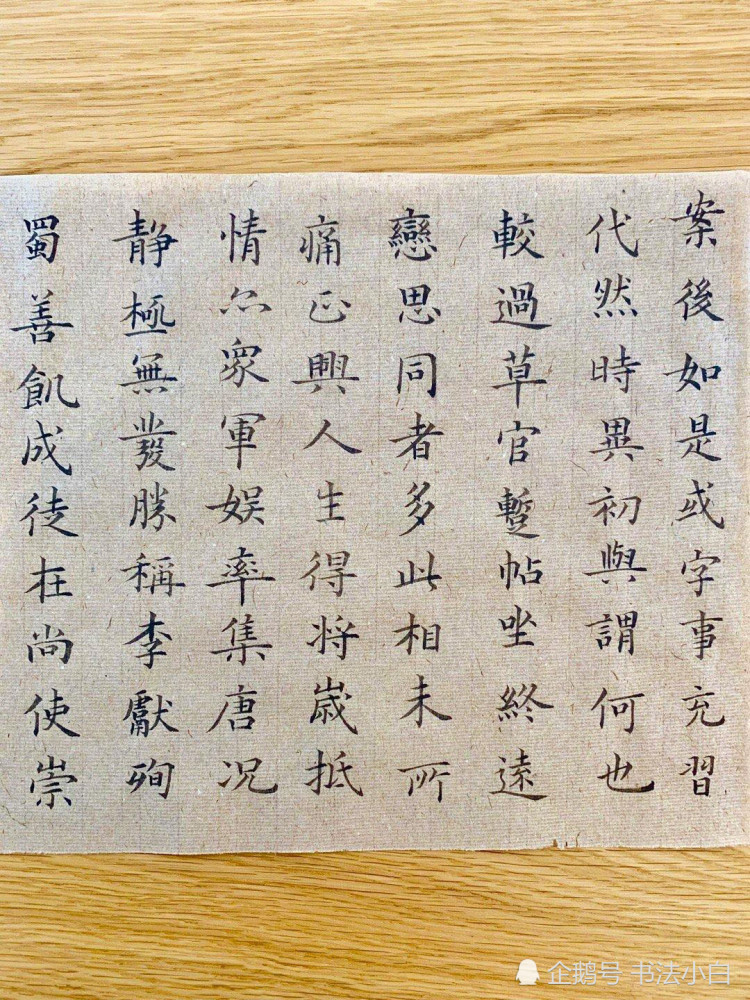 案後如是或字事充習
代然時異初與謂何也
較過草官蹔帖坐終遠
戀思同者多此相未所
痛正興人生得將歲抵
情亦眾軍娱率集唐况
静極無發勝稱李獻殉
蜀善飢成徒在尚使崇
企鹅号 书法小白